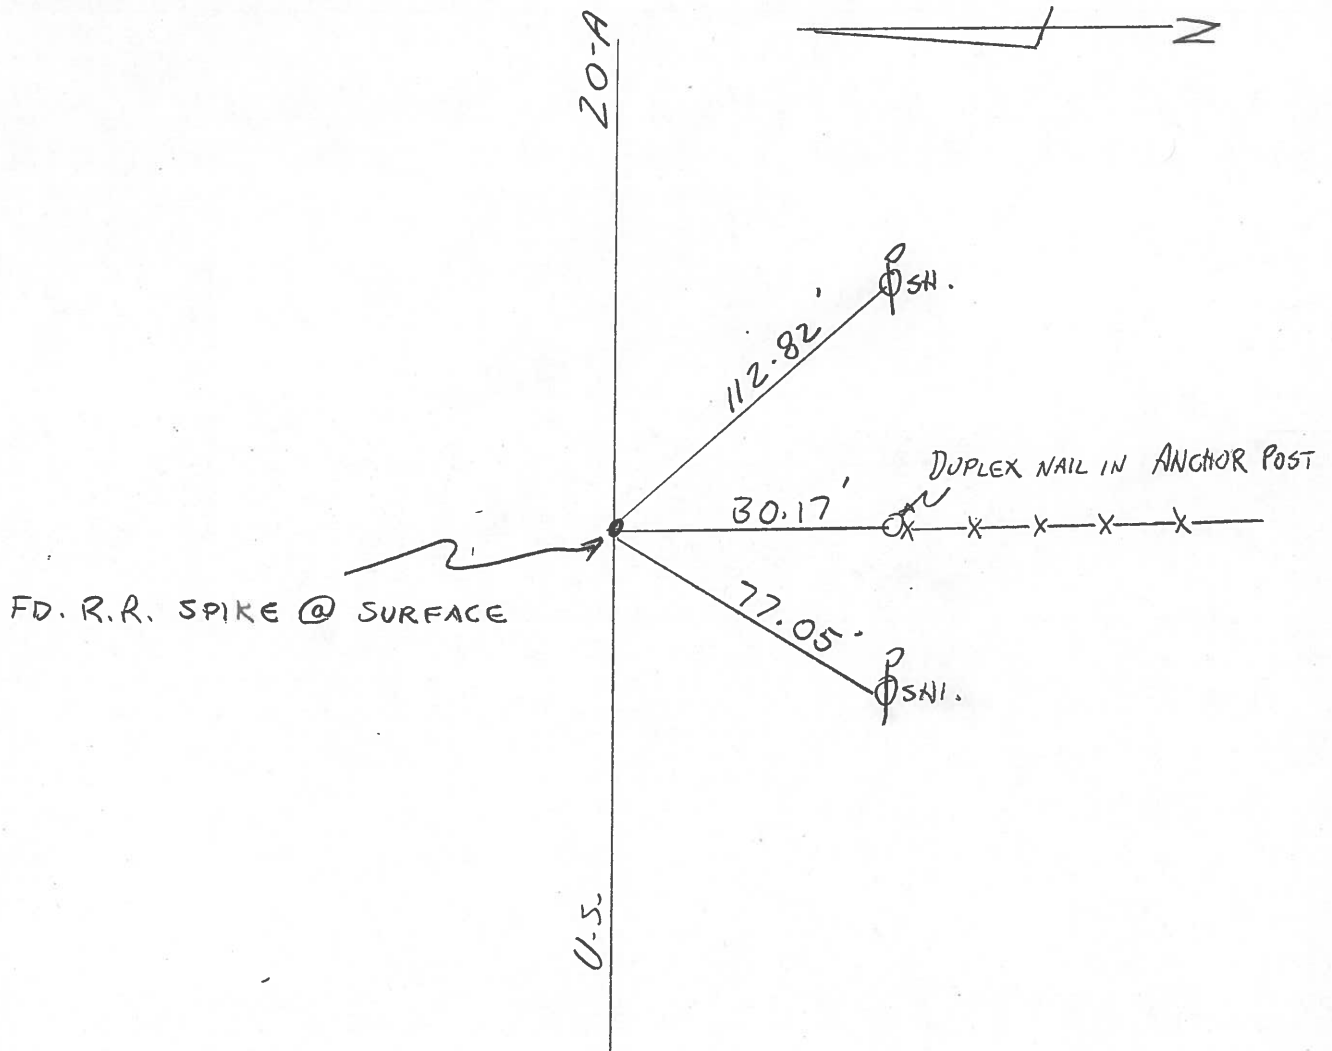 20-A
N
SH.
112.82'
DUPLEX NAIL IN ANCHOR POST
30.17'
FD. R.R. SPIKE @ SURFACE
77.05'
SHI.
U.S.